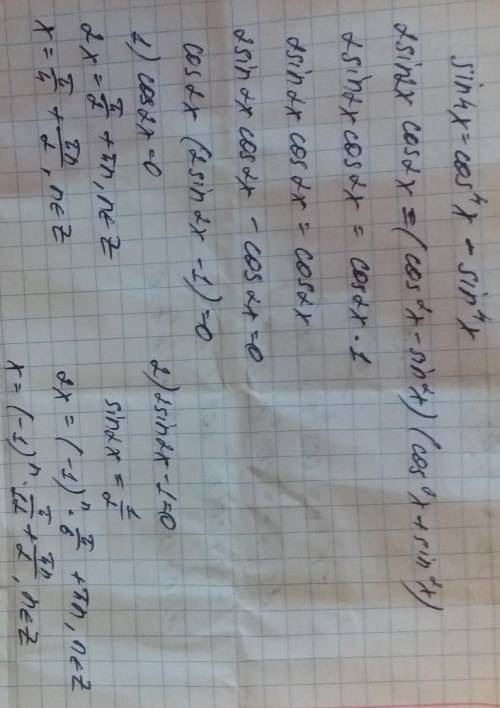 sin4x = cos⁴x - sin⁴x
2sin2x cos2x = (cos²x - sin²x) (cos²x + sin²x)
2sin2x cos2x = cos2x · 1
2sin2x cos2x = cos2x
2sin2x cos2x - cos2x = 0
cos2x (2sin2x - 1) = 0
1) cos2x = 0
2x = π/2 + πn, n∈Z
x = π/4 + πn/2, n∈Z
2) 2sin2x - 1 = 0
sin2x = 1/2
2x = (-1)ⁿ · π/6 + πn, n∈Z
x = (-1)ⁿ · π/12 + πn/2, n∈Z